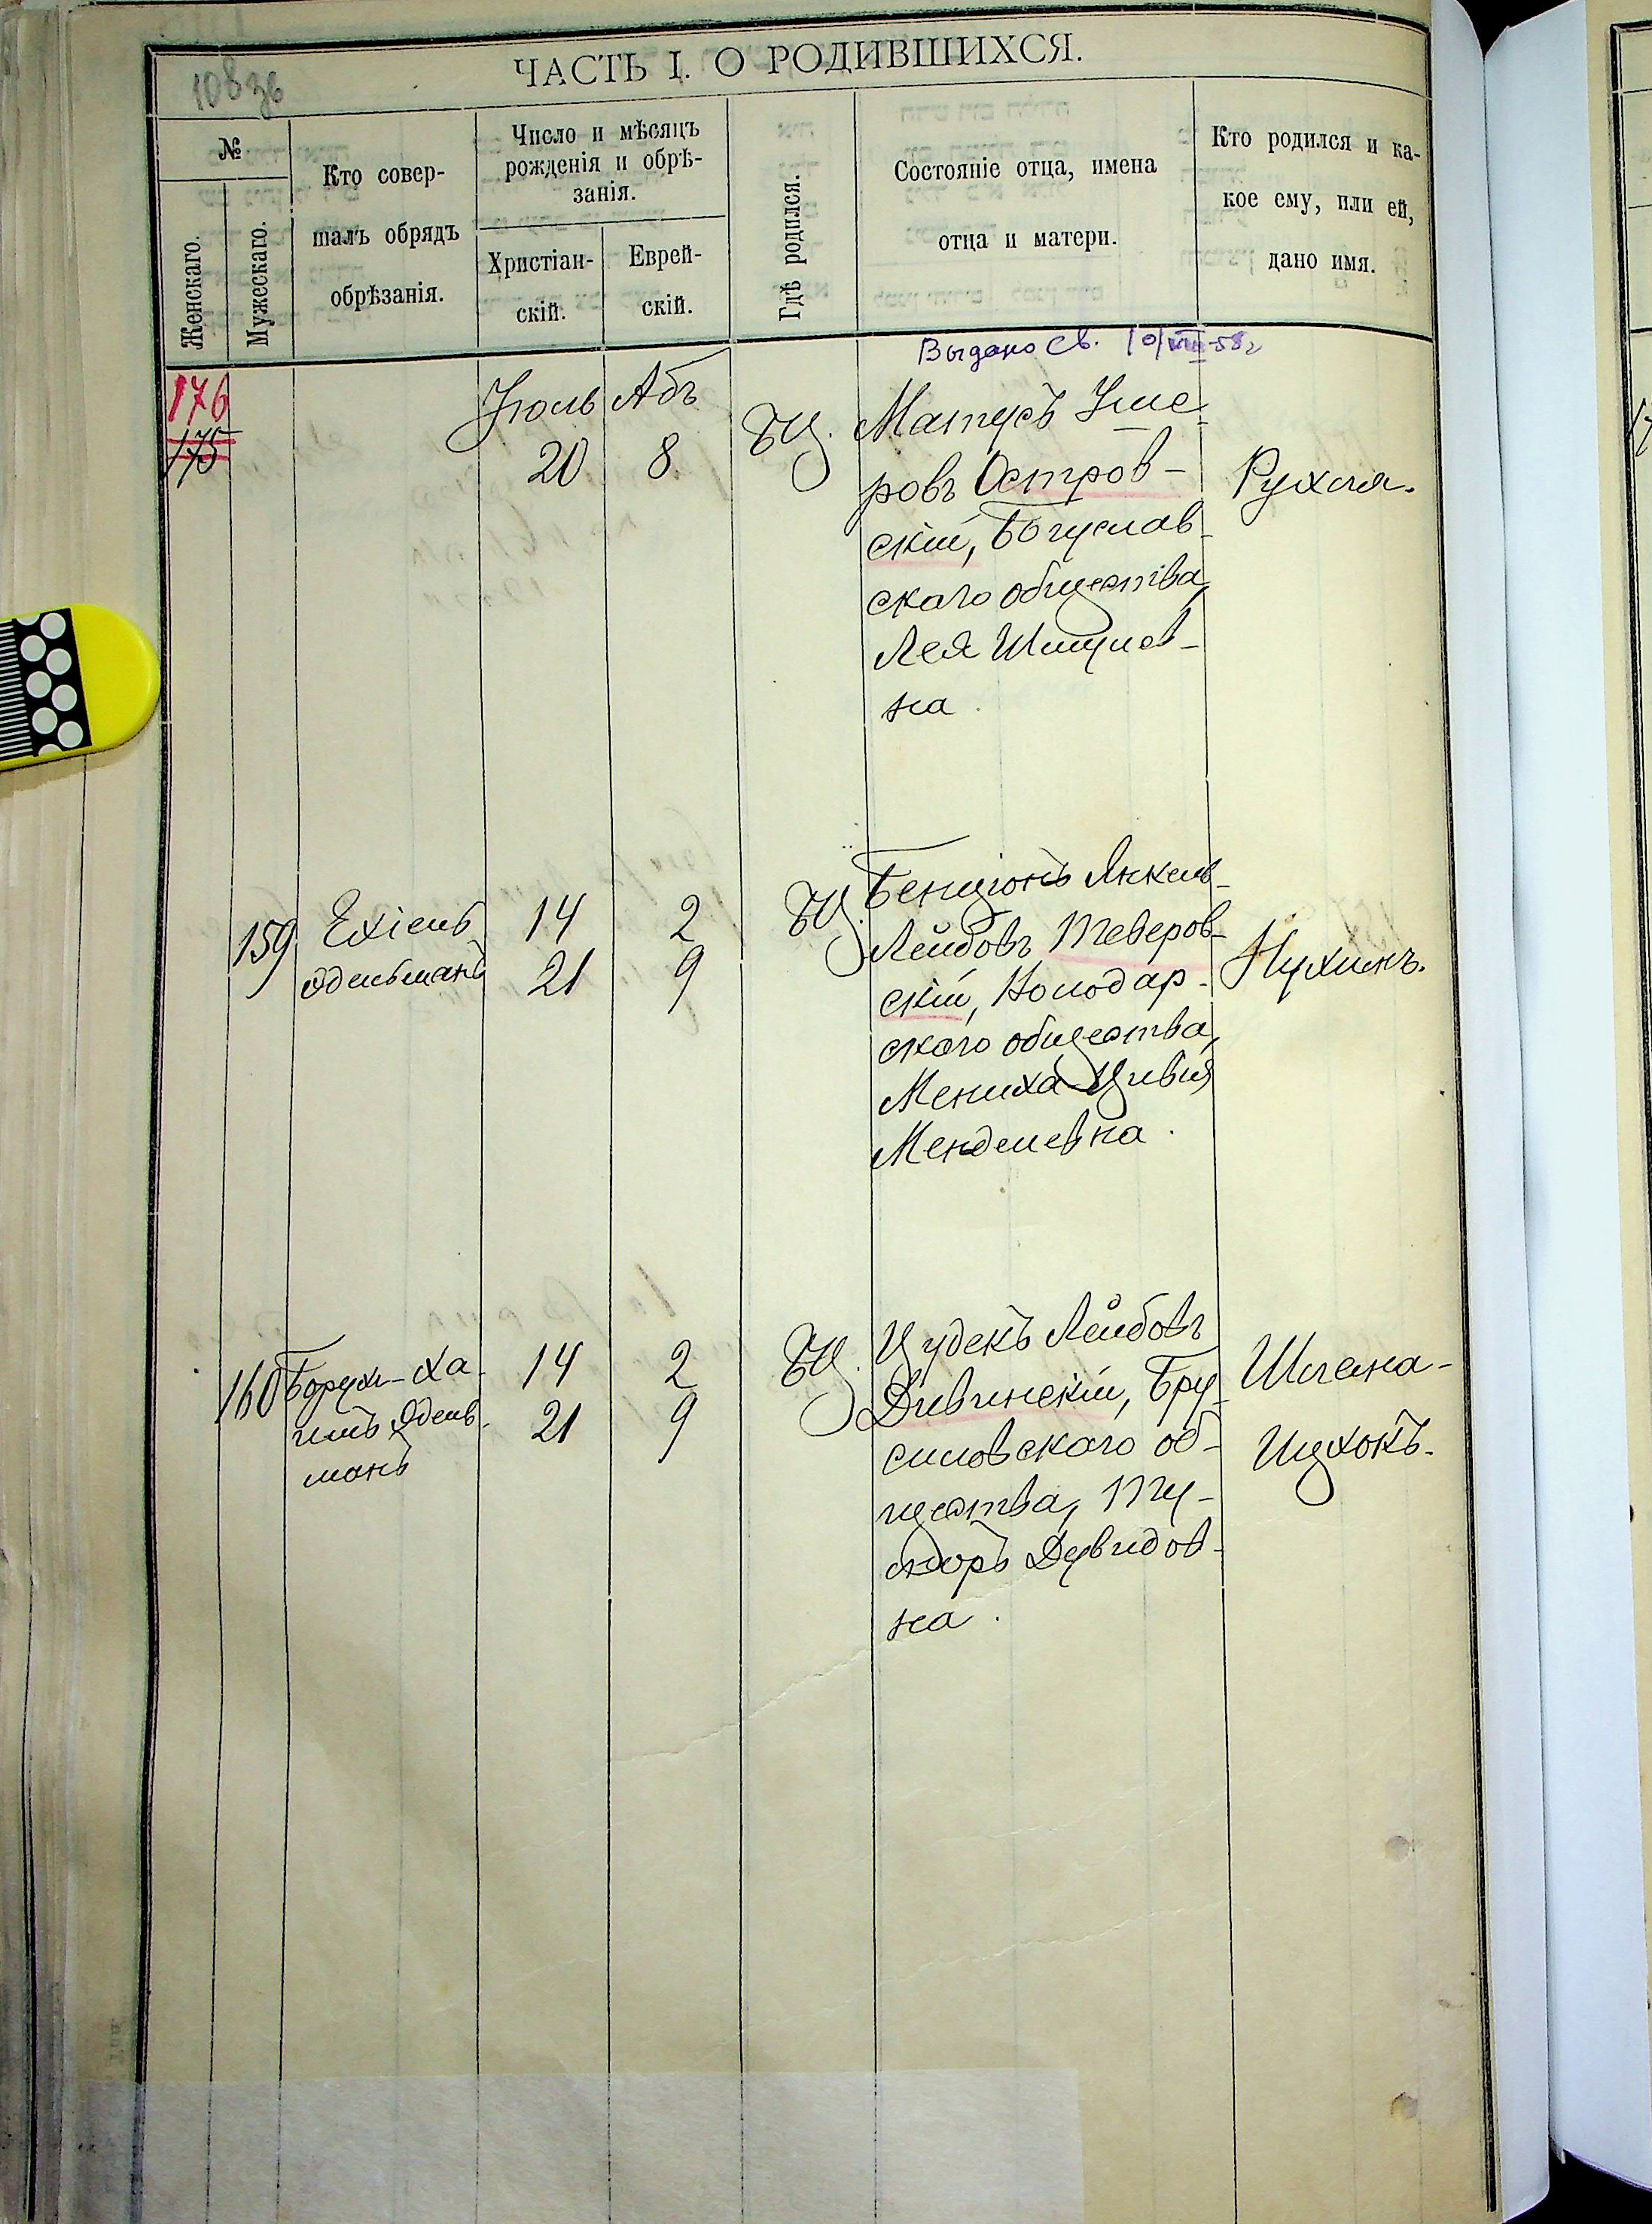 108зв
ЧАСТЬ I. О РОДИВШИХСЯ.
№
Женскаго.
Мужескаго.
Кто совер-
шалъ обрядъ
обрѣзанія.
Число и мѣсяцъ
рожденія и обрѣ-
занія.
Христіан-
скій.
Еврей-
скій.
Гдѣ родился.
Состояніе отца, имена
отца и матери.
Кто родился и ка-
кое ему, или ей,
дано имя.
Выдано св. 10/VIII-58г
176
175
Іюль Абъ
20 8
БЦ.
Матусъ Уше-
ровъ Остров-
скій, Богуслав-
скаго общества,
Лея Шмулев-
на.
Рухля.
159
Ехіель
Эдельманъ
14 2
21 9
БЦ.
Бенціонъ Янкель-
Лейбовъ Теверов-
скій, Володар-
скаго общества,
Мениха Цивья
Менделевна.
Нухимъ.
160
Борухъ-Ха-
имъ Эдель-
манъ
14 2
21 9
БЦ.
Цудекъ Лейбовъ
Дивинскій, Бру-
силовскаго об-
щества,
Дувидов-
на.
Шлема-
Ицхокъ.